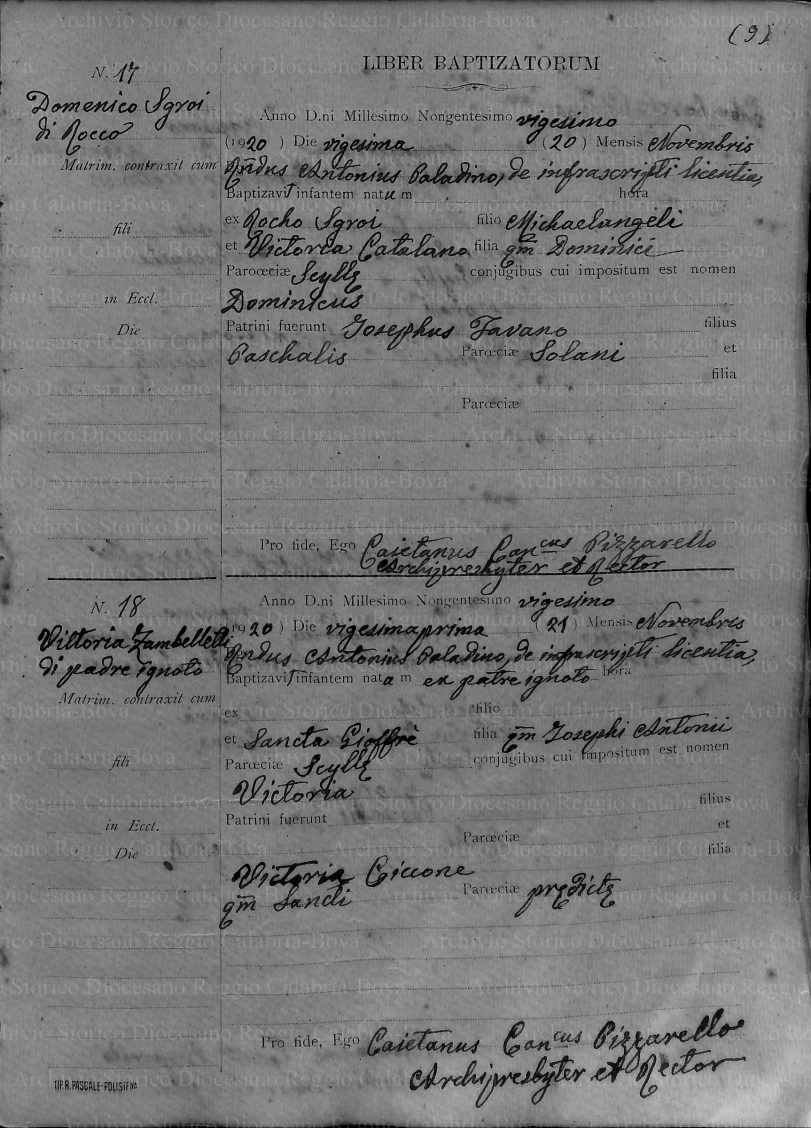 (9)
LIBER BAPTIZATORUM
N. 17
Domenico Sgroi
di Rocco
Matrim. contraxit cum
fili
in Eccl.
Die
Anno D.ni Millesimo Nongentesimo vigesimo
(1920) Die vigesima (20) Mensis Novembris
Rndus Antonius Paladino, de infrascripti licentia,
Baptizavit infantem natum hora
ex Rocho Sgroi filio Michaelangeli
et Victoria Catalano filia qm Dominici
Parœciæ Scyllę conjugibus cui impositum est nomen
Dominicus
Patrini fuerunt Josephus Favano filius
Paschalis Parœciæ Solani et
filia
Parœciæ
Pro fide, Ego Caietanus Cancus Pizzarello
Archipresbyter et Rector
N. 18
Vittoria Zambelletti
di padre ignoto
Matrim. contraxit cum
fili
in Eccl.
Die
Anno D.ni Millesimo Nongentesimo vigesimo
(1920) Die vigesimaprima (21) Mensis Novembris
Rndus Antonius Paladino, de infrascripti licentia,
Baptizavit infantem natam ex patre ignoto hora
ex filio
et Sancta Gioffrè filia qm Josephi Antonii
Parœciæ Scyllę conjugibus cui impositum est nomen
Victoria
Patrini fuerunt filius
Parœciæ et
filia
Victoria Ciccone
qm Sancti Parœciæ prędictę
Pro fide, Ego Caietanus Cancus Pizzarello
Archipresbyter et Rector
TIP. R. PASCALE-POLISTENA
Archivio Storico Diocesano Reggio Calabria-Bova